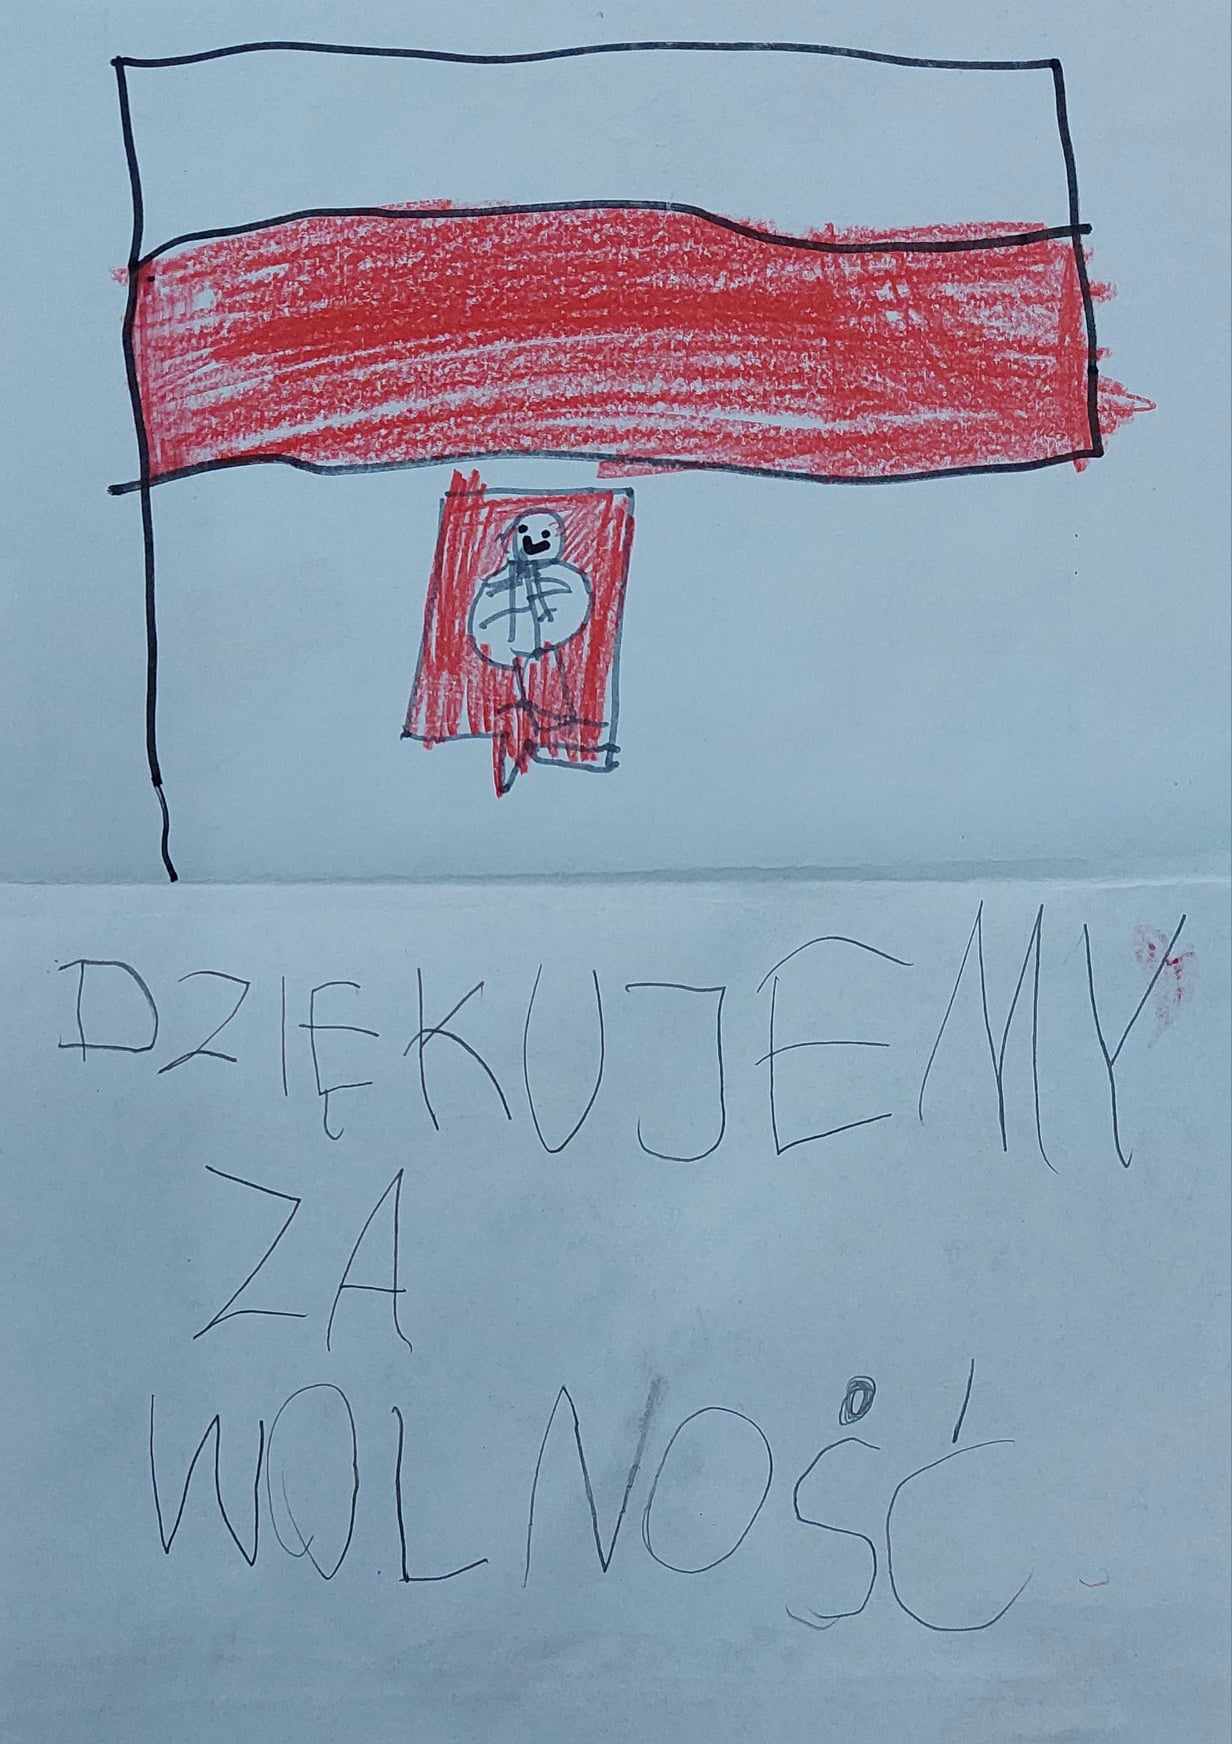 DZIĘKUJEMY
ZA
WOLNOŚĆ